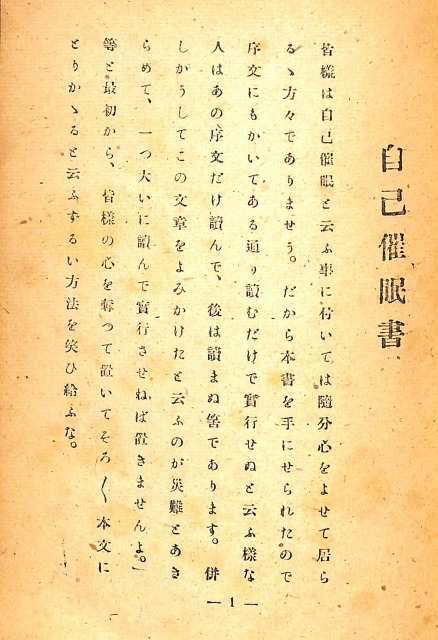 自己催眠書
皆様は自己催眠と云ふ事に付いては隨分心をよせて居ら
るゝ方々でありませう。だから本書を手にせられたので
序文にもかいてある通り讀むだけで實行せぬと云ふ樣な
人はあの序文だけ讀んで、後は讀まぬ筈であります。併
しかうしてこの文章をよみかけたと云ふのが災難とあき
らめて、一つ大いに讀んで實行させねば置きませんよ。」
等と最初から、皆様の心を奪つて置いてそろ〱本文に
とりかゝると云ふずるい方法を笑ひ給ふな。
— 1 —